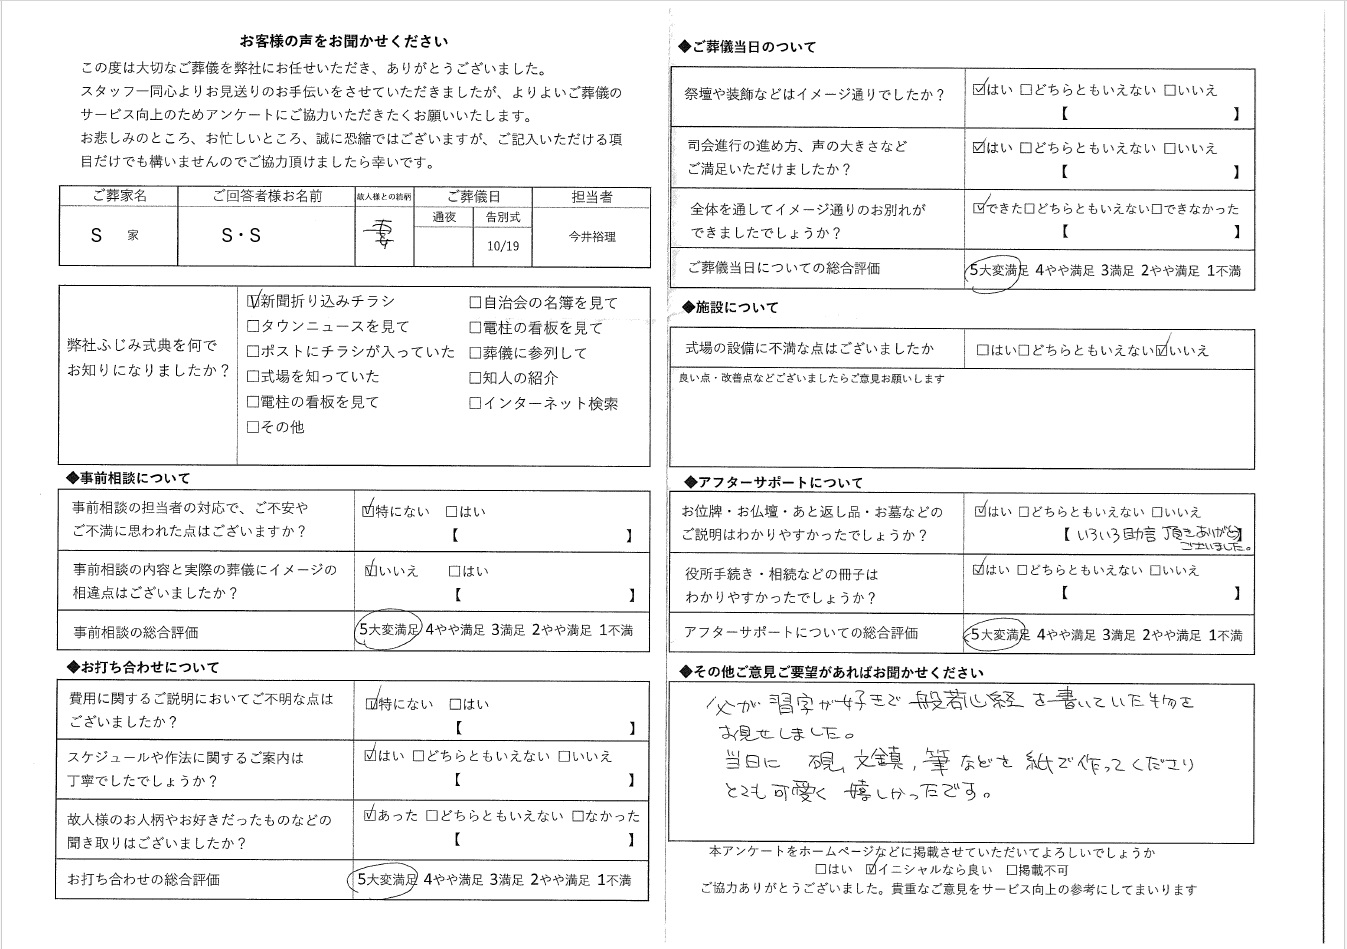 お客様の声をお聞かせください
この度は大切なご葬儀を弊社にお任せいただき、ありがとうございました。
スタッフ一同心よりお見送りのお手伝いをさせていただきましたが、よりよいご葬儀の
サービス向上のためアンケートにご協力いただきたくお願いいたします。
お悲しみのところ、お忙しいところ、誠に恐縮ではございますが、ご記入いただける項
目だけでも構いませんのでご協力頂けましたら幸いです。
ご葬家名 ご回答者様お名前 故人様との続柄 ご葬儀日 担当者
通夜 告別式
S 家 S・S 妻 10/19 今井裕理
弊社ふじみ式典を何で
お知りになりましたか？
☑新聞折り込みチラシ □自治会の名簿を見て
□タウンニュースを見て □電柱の看板を見て
□ポストにチラシが入っていた □葬儀に参列して
□式場を知っていた □知人の紹介
□電柱の看板を見て □インターネット検索
□その他
◆事前相談について
事前相談の担当者の対応で、ご不安や
ご不満に思われた点はございますか？
☑特にない □はい
【 】
事前相談の内容と実際の葬儀にイメージの
相違点はございましたか？
☑いいえ □はい
【 】
事前相談の総合評価 5大変満足 4やや満足 3満足 2やや満足 1不満
◆お打ち合わせについて
費用に関するご説明においてご不明な点は
ございましたか？
☑特にない □はい
【 】
スケジュールや作法に関するご案内は
丁寧でしたでしょうか？
☑はい □どちらともいえない □いいえ
【 】
故人様のお人柄やお好きだったものなどの
聞き取りはございましたか？
☑あった □どちらともいえない □なかった
【 】
お打ち合わせの総合評価 5大変満足 4やや満足 3満足 2やや満足 1不満
◆ご葬儀当日のついて
祭壇や装飾などはイメージ通りでしたか？
☑はい □どちらともいえない □いいえ
【 】
司会進行の進め方、声の大きさなど
ご満足いただけましたか？
☑はい □どちらともいえない □いいえ
【 】
全体を通してイメージ通りのお別れが
できましたでしょうか？
☑できた□どちらともいえない□できなかった
【 】
ご葬儀当日についての総合評価 5大変満足 4やや満足 3満足 2やや満足 1不満
◆施設について
式場の設備に不満な点はございましたか □はい□どちらともいえない☑いいえ
良い点・改善点などございましたらご意見お願いします
◆アフターサポートについて
お位牌・お仏壇・あと返し品・お墓などの
ご説明はわかりやすかったでしょうか？
☑はい □どちらともいえない □いいえ
【 いろいろ助言 頂きありがとう】
ございました。
役所手続き・相続などの冊子は
わかりやすかったでしょうか？
☑はい □どちらともいえない □いいえ
【 】
アフターサポートについての総合評価 5大変満足 4やや満足 3満足 2やや満足 1不満
◆その他ご意見ご要望があればお聞かせください
父が 習字が好きで 般若心経 を書いていた物を
お見せしました。
当日に 硯、文鎮、筆などを 紙で作ってくださり
とても可愛く 嬉しかったです。
本アンケートをホームページなどに掲載させていただいてよろしいでしょうか
□はい ☑イニシャルなら良い □掲載不可
ご協力ありがとうございました。貴重なご意見をサービス向上の参考にしてまいります